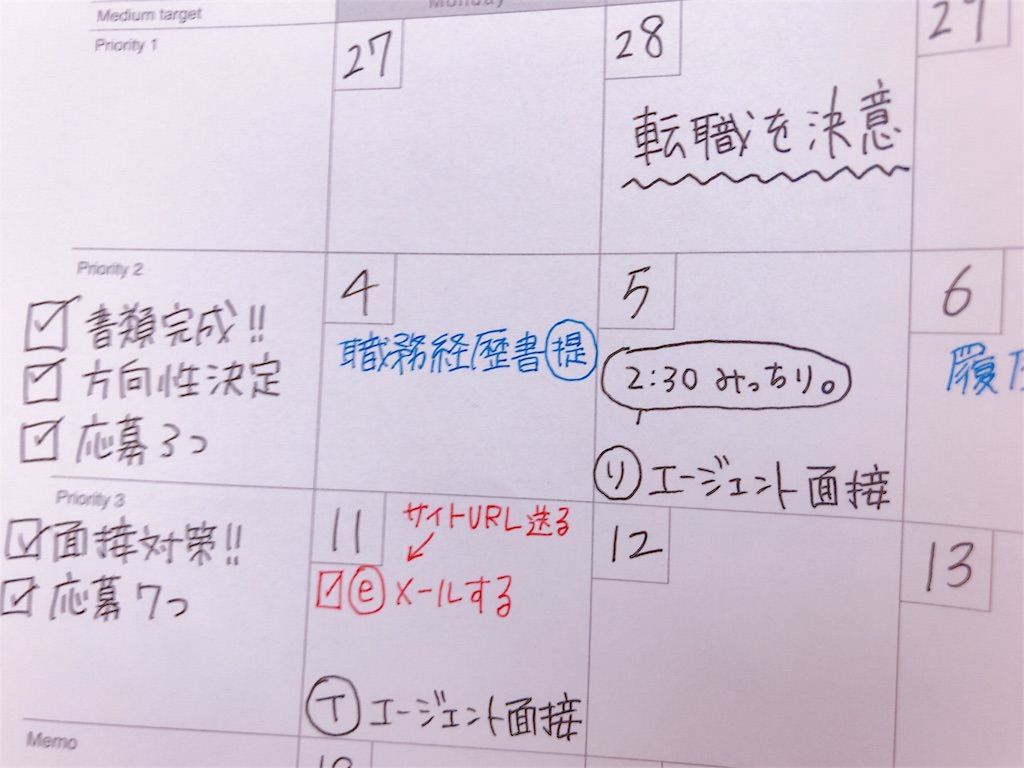 Medium target
Monday
Priority 1
27
28
29
転職を決意
Priority 2
4
5
6
書類完成!!
方向性決定
応募3つ
職務経歴書提
2:30 みっちり。
り エージェント面接
履
Priority 3
11
12
13
面接対策!!
応募7つ
サイトURL送る
e メールする
T エージェント面接
Memo